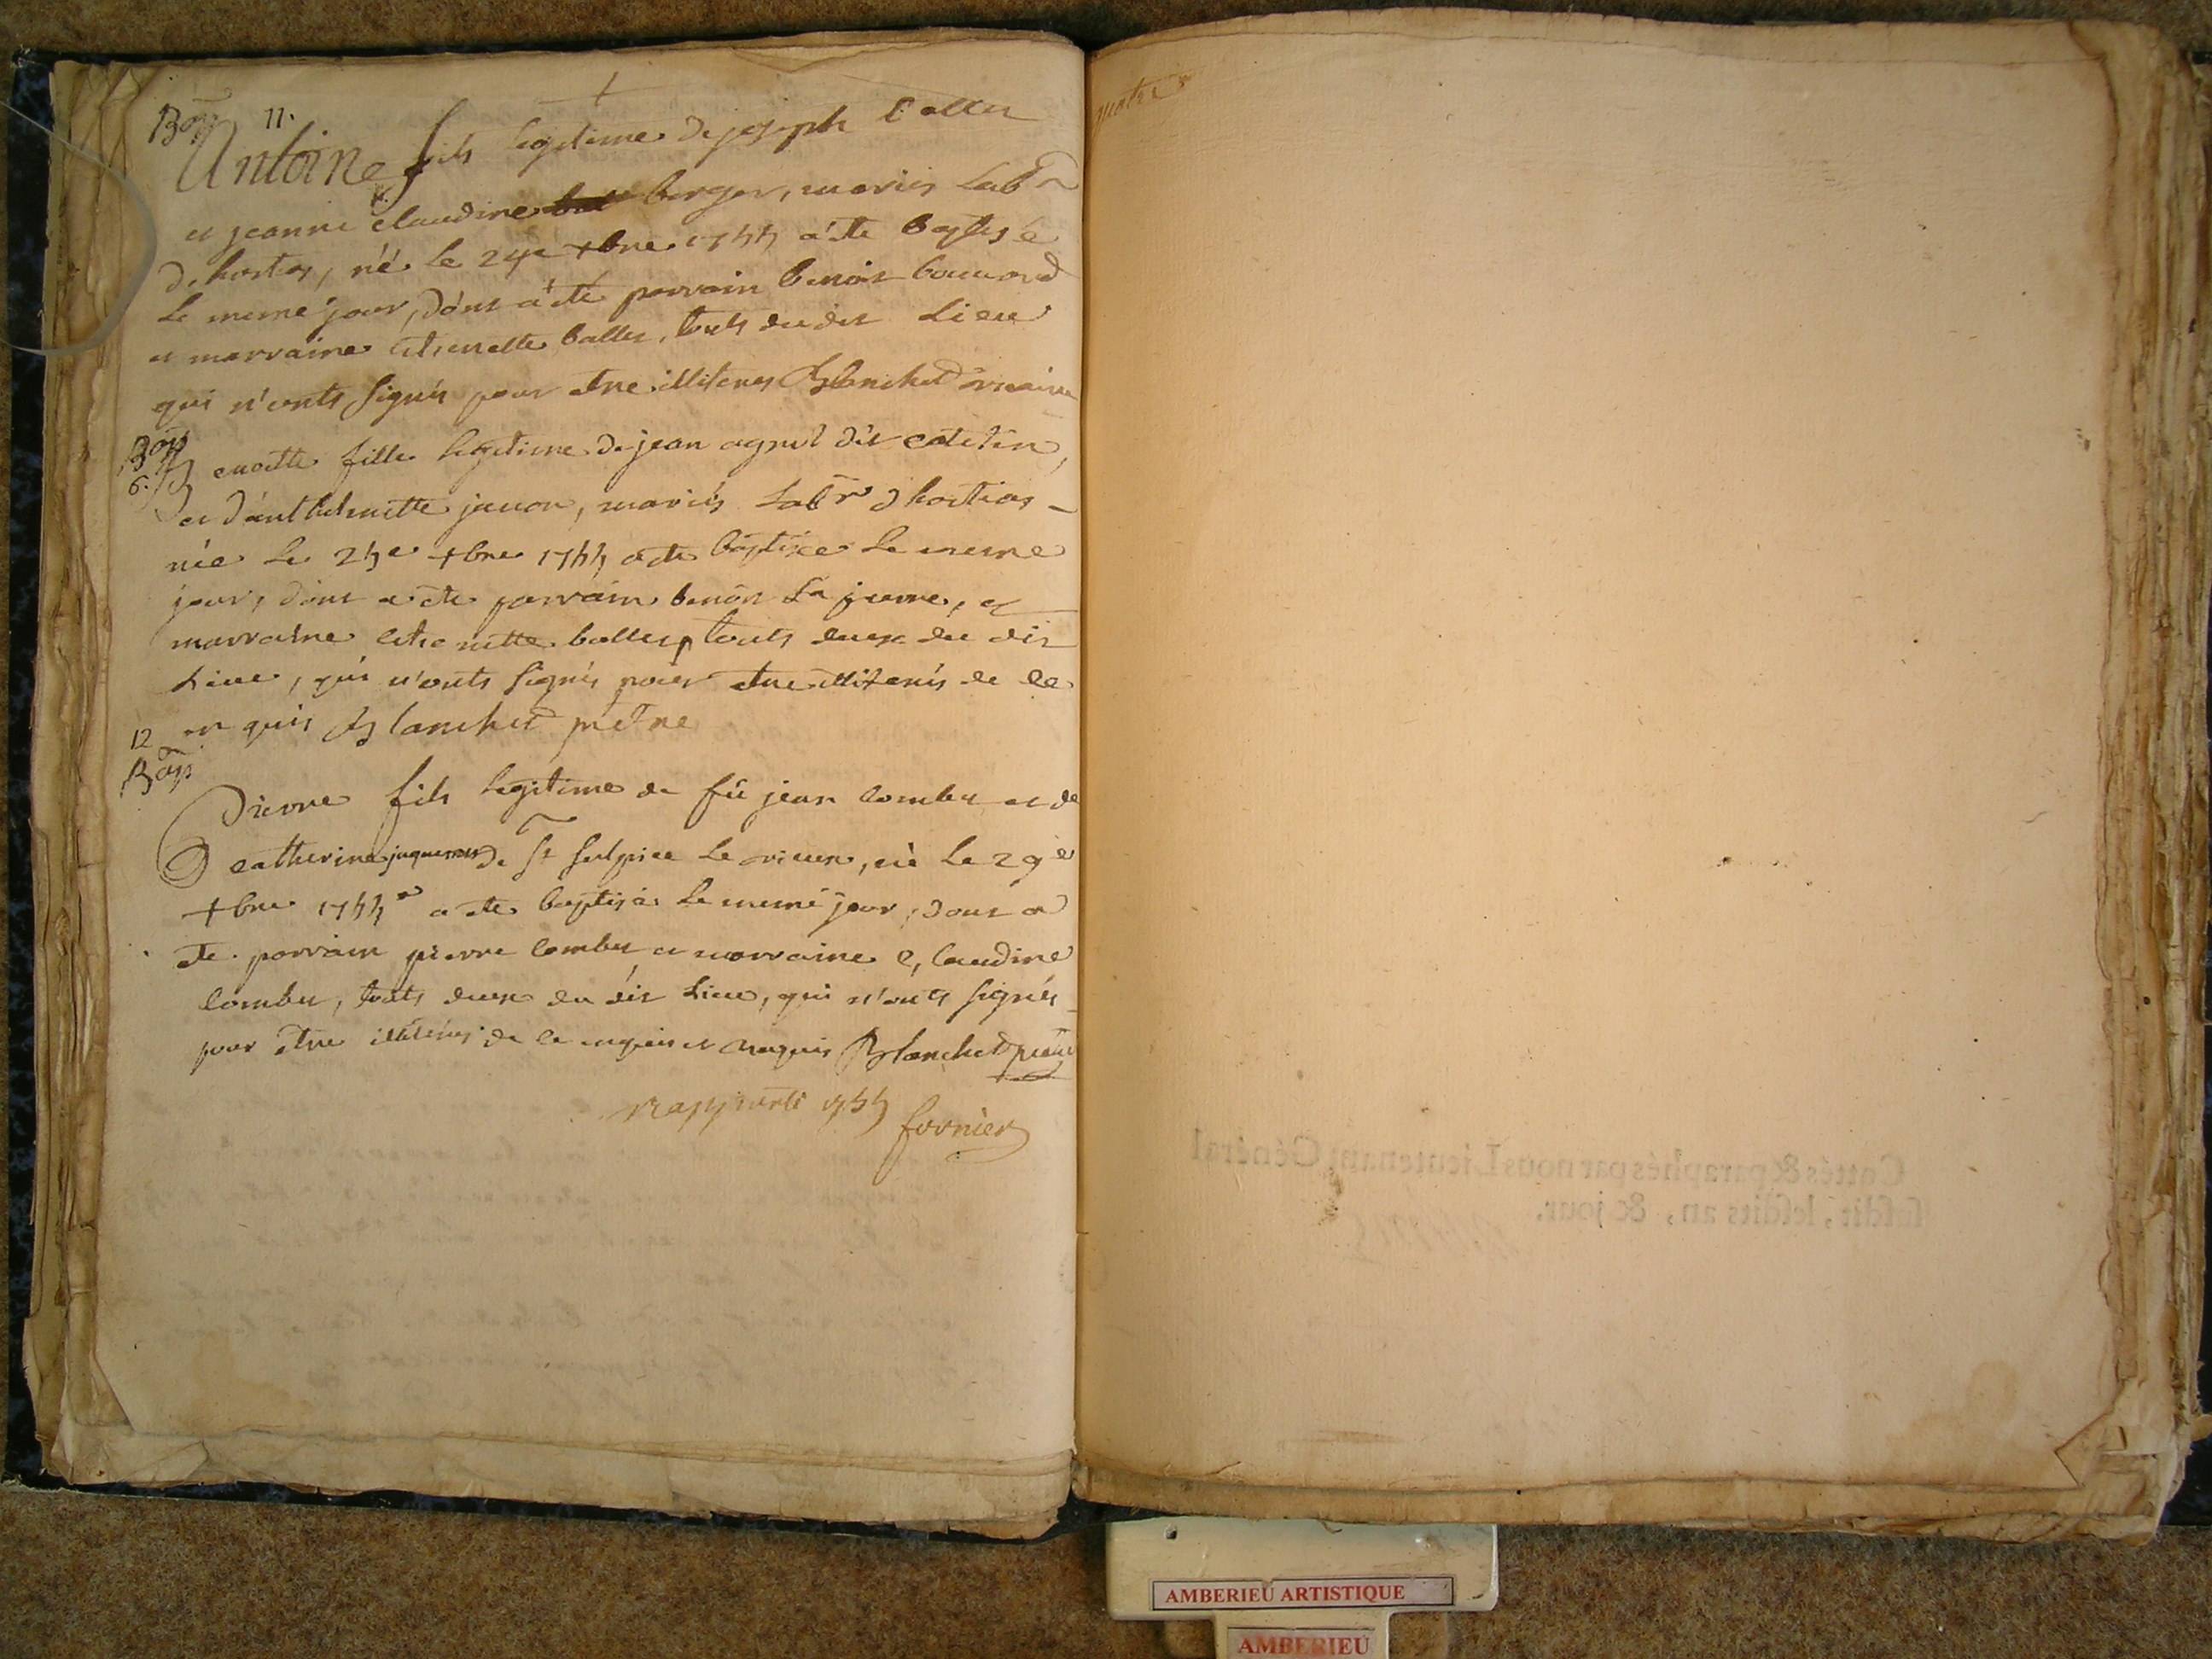 Bap
11.
Antoine fils legitime de joseph ballet
et jeanne claudine berger, mariés Labr
d hostias, né le 24e xbre 1744 a été baptisé
le meme jour, dont a été parrain benoit
et marraine ballet, touts du dit Lieu
qui n'onts signés pour etre illiterés Blanchet vicaire
Bap
6.
Benoitte fille legitime de jean agniel dit catetin,
et d'anthelmette juvon, mariés Labr d hostias
née le 25e xbre 1744 a ete baptisée le meme
jour, dont a ete parrain benoit La jeune, et
marraine ballet, touts deux du dit
Lieu, qui n'onts signés pour etre illiterés de ce
enquis Blanchet prêtre
12
Bap
Pierre fils legitime de fû jean combet et de
catherine juquemet de St sulpice le vieux, né le 29e
xbre 1744 a ete baptisé le meme jour, dont a
ete parrain pierre combet et marraine claudine
combet, touts deux du dit Lieu, qui n'onts signés
pour être illiterés de ce enquis et requis Blanchet prêtre
rapporté 1744
fornier
quatre
Cottés & paraphés par nous Lieutenant Général
susdit, lesdits an, & jour.
AMBERIEU ARTISTIQUE
AMBERIEU